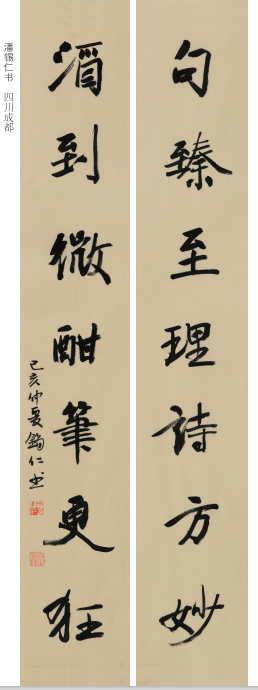 句臻至理詩方妙
酒到微酣筆更狂
己亥仲夏錫仁书
潘锡仁书 四川成都